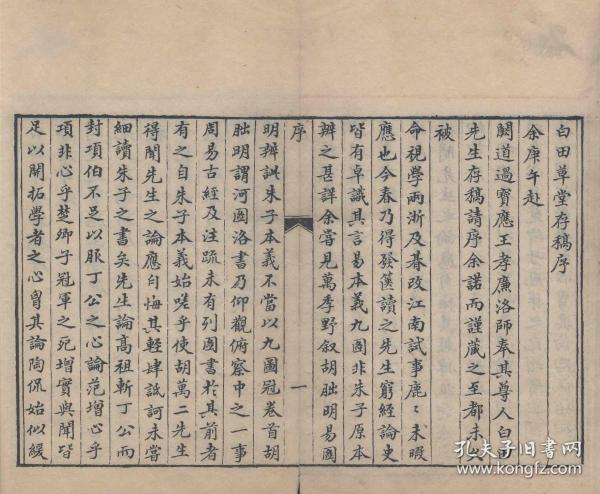 白田草堂存稿序
余庚午赴
闕道過寶應王孝廉洛師奉其尊人白田
先生存稿請序余諾而謹藏之至都未
被
命視學兩浙及暮改江南試事鹿鹿未暇
應也今春乃得發篋讀之先生窮經論史
皆有卓識其言易本義九圖非朱子原本
辨之甚詳余嘗見萬季野叙胡朏明易圖
序
一
明辨訊朱子本義不當以九圖冠卷首胡
朏明謂河圖洛書乃仰觀俯察中之一事
周易古經及注疏未有列圖書於其前者
有之自朱子本義始嗟乎使胡萬二先生
得聞先生之論應自悔其輕肆詆訶未嘗
細讀朱子之書矣先生論高祖斬丁公而
封項伯不足以服丁公之心論范增心乎
項非心乎楚卿子冠軍之死增實與聞皆
足以開拓學者之心胷其論陶侃始似緩
孔夫子旧书网
www.kongfz.com